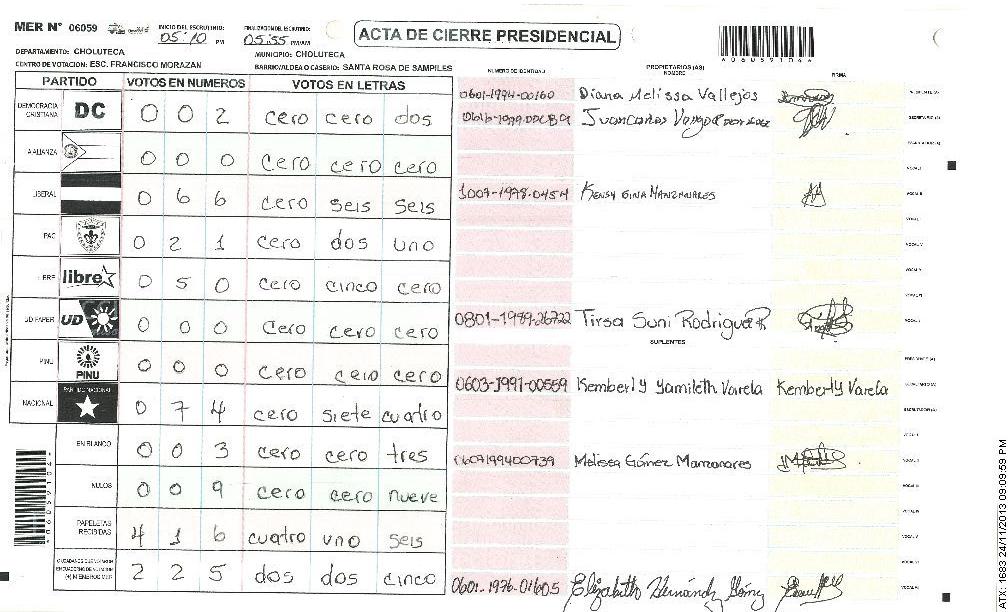 MER N° 06059 INICIO DEL ESCRUTINIO: 05:10 PM FINALIZACIÓN DEL ESCRUTINIO: 05:55 PM/AM ACTA DE CIERRE PRESIDENCIAL
DEPARTAMENTO: CHOLUTECA MUNICIPIO: CHOLUTECA
CENTRO DE VOTACION: ESC. FRANCISCO MORAZAN BARRIO/ALDEA O CASERIO: SANTA ROSA DE SAMPILES
PARTIDO VOTOS EN NUMEROS VOTOS EN LETRAS
DEMOCRACIA CRISTIANA DC 0 0 2 cero cero dos
ALIANZA 0 0 0 cero cero cero
LIBERAL 0 6 6 cero seis seis
PAC 0 2 1 cero dos uno
LIBRE libre 0 5 0 cero cinco cero
UD FAPER UD 0 0 0 cero cero cero
PINU PINU 0 0 0 cero cero cero
NACIONAL PARTIDO NACIONAL 0 7 4 cero siete cuatro
EN BLANCO 0 0 3 cero cero tres
NULOS 0 0 9 cero cero nueve
PAPELETAS RECIBIDAS 4 1 6 cuatro uno seis
2 2 5 dos dos cinco
NUMERO DE IDENTIDAD PROPIETARIOS (AS) NOMBRE FIRMA
0601-1994-00160 Diana Melissa Vallejos
Juan Carlos
Kensy Gina Manzanares
0801-1989-26722 Tirsa Suni Rodriguez
SUPLENTES
0603-1991-00559 Kemberly Yamileth Varela Kemberly Varela
0601199400739 Melissa Gómez Manzanares
0601-1976-01605 Elizabeth Hernández Gómez
06059104
ATX: 1683 24/11/2013 09:09:59 PM